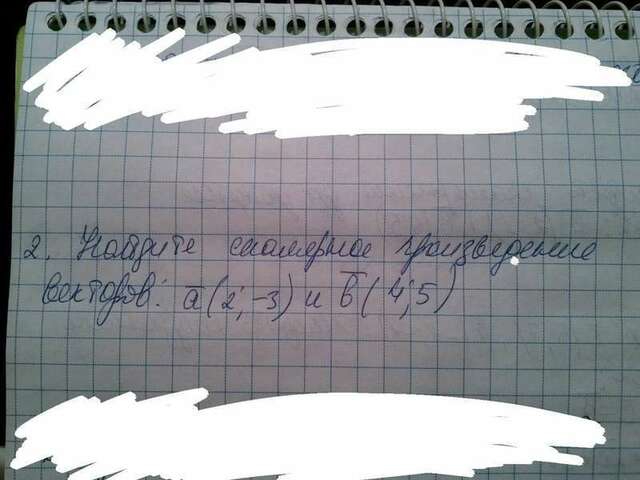 2. Найдите скалярное произведение
векторов: a̅ (2; -3) и b̅ ( 4; 5)